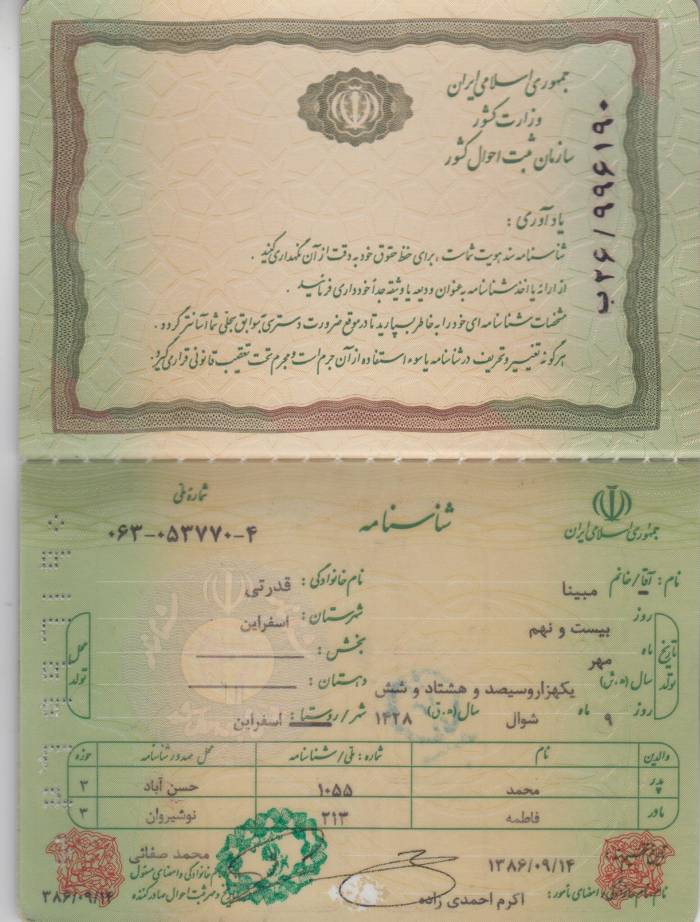 جمهوری اسلامی ایران
وزارت کشور
سازمان ثبت احوال کشور
ب۲۶/۹۹۶۱۹۰
یادآوری :
شناسنامه سند هویت شماست ، برای حفظ حقوق خود به دقت از آن نگهداری کنید .
از ارائه یا اخذ شناسنامه به عنوان ودیعه یا وثیقه جداً خودداری فرمائید .
مشخصات شناسنامه ای خود را به خاطر بسپارید تا در موقع ضرورت دسترسی به سوابق سجلی شما آسانتر گردد .
هرگونه تغییر و تحریف در شناسنامه یا سوء استفاده از آن جرم است و مجرم تحت تعقیب قانونی قرار می گیرد.
جمهوری اسلامی ایران
شناسنامه
شماره ملی
۰۶۳-۰۵۳۷۷۰-۴
نام : آقا/خانم مبینا
نام خانوادگی : قدرتی
تاریخ تولد
روز بیست و نهم
ماه مهر
سال (ه.ش) یکهزاروسیصد و هشتاد و شش
روز ۹ ماه شوال سال (ه.ق) ۱۴۲۸
محل تولد
شهرستان : اسفراین
بخش :
دهستان :
شهر/روستا : اسفراین
والدین نام شماره : ملی/شناسنامه محل صدور شناسنامه حوزه
پدر محمد ۱۰۵۵ حسن آباد ۳
مادر فاطمه ۲۱۳ نوشیروان ۳
۱۳۸۶/۰۹/۱۴
اکرم احمدی زاده
نام خانوادگی و امضای مأمور :
محمد صفائی
نام خانوادگی و امضای مسئول
و مهر ثبت احوال صادر کننده
۱۳۸۶/۰۹/۱۴